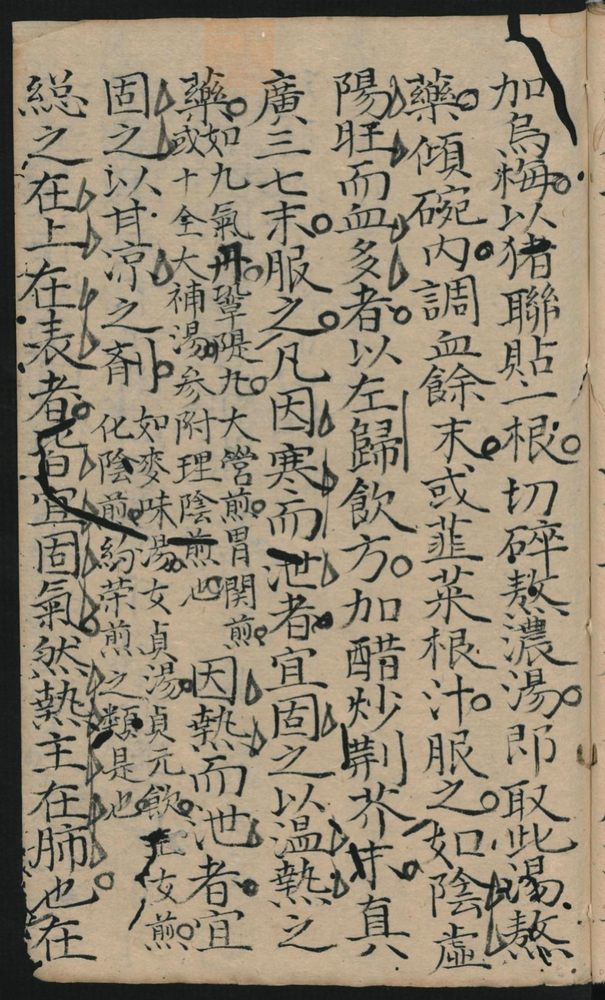 加烏梅以猪聯貼一根切碎熬濃湯即取此湯熬
藥傾碗內調血餘末或韮菜根汁服之如陰虛
陽旺而血多者以左歸飲方加醋炒荆芥末真
廣三七末服之凡因寒而泄者宜固之以温熱之
藥如九氣丹鞏隄丸大營煎胃関煎
或十全大補湯參附理陰煎也
因熱而泄者宜
固之以甘凉之剤
如麥味湯女貞湯貞元飲女煎
化陰煎約荣煎之類是也
総之在上在表者皆宜固氣然熱主在肺也在